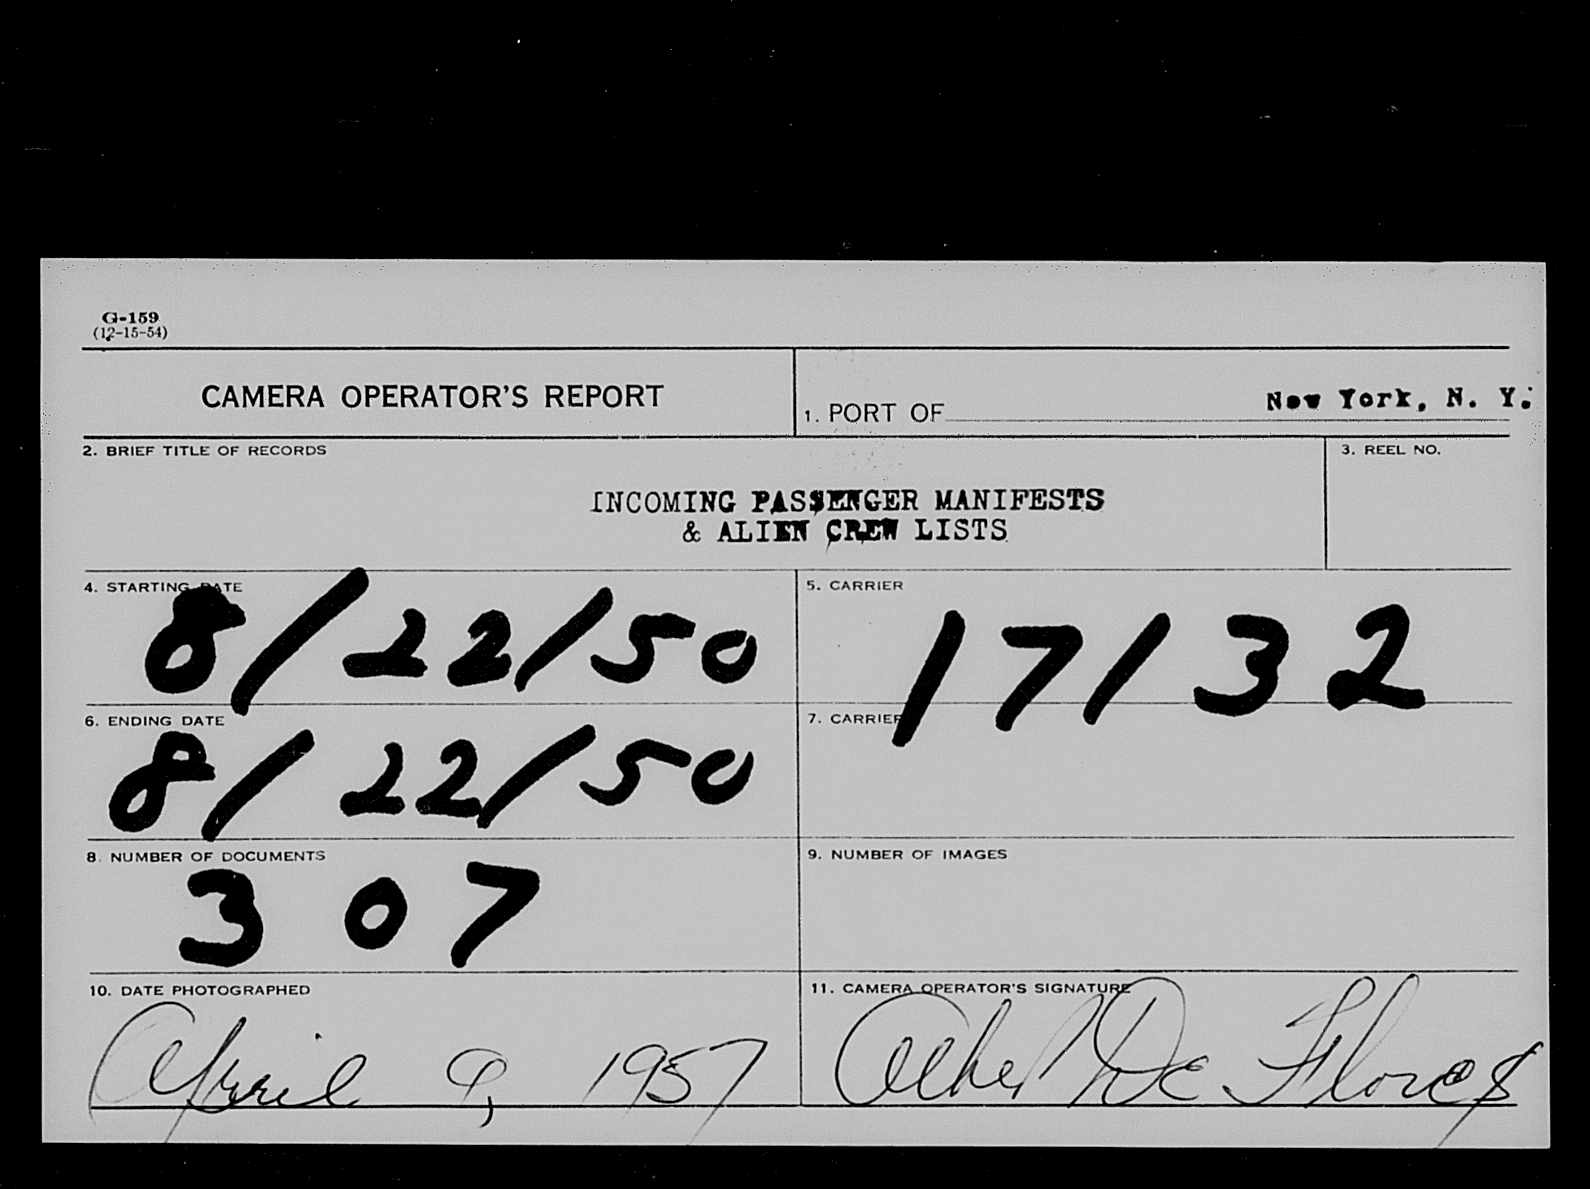 G-159
(12-15-54)
CAMERA OPERATOR'S REPORT
1. PORT OF New York, N. Y.
2. BRIEF TITLE OF RECORDS
3. REEL NO.
INCOMING PASSENGER MANIFESTS
& ALIEN CREW LISTS
4. STARTING DATE
8/22/50
5. CARRIER
17/32
6. ENDING DATE
8/22/50
7. CARRIER
8. NUMBER OF DOCUMENTS
307
9. NUMBER OF IMAGES
10. DATE PHOTOGRAPHED
April 9, 1957
11. CAMERA OPERATOR'S SIGNATURE
De Flores